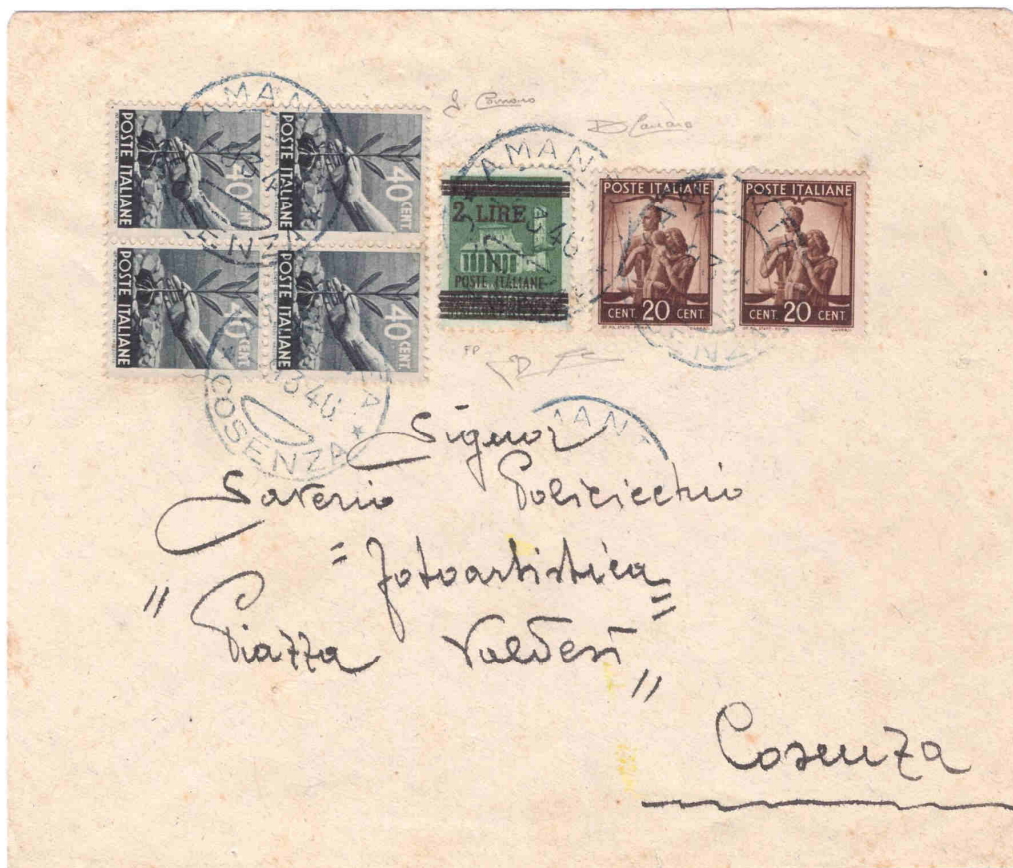 POSTE ITALIANE
40 CENT.
POSTE ITALIANE
40 CENT.
POSTE ITALIANE
40 CENT.
POSTE ITALIANE
40 CENT.
2 LIRE
POSTE ITALIANE
POSTE ITALIANE
CENT. 20 CENT.
POSTE ITALIANE
CENT. 20 CENT.
AMAN
COSENZA
AMAN
AMAN
FP
Signor
Saverio Policicchio
"fotoartistica"
"Piazza Valdesi"
Cosenza